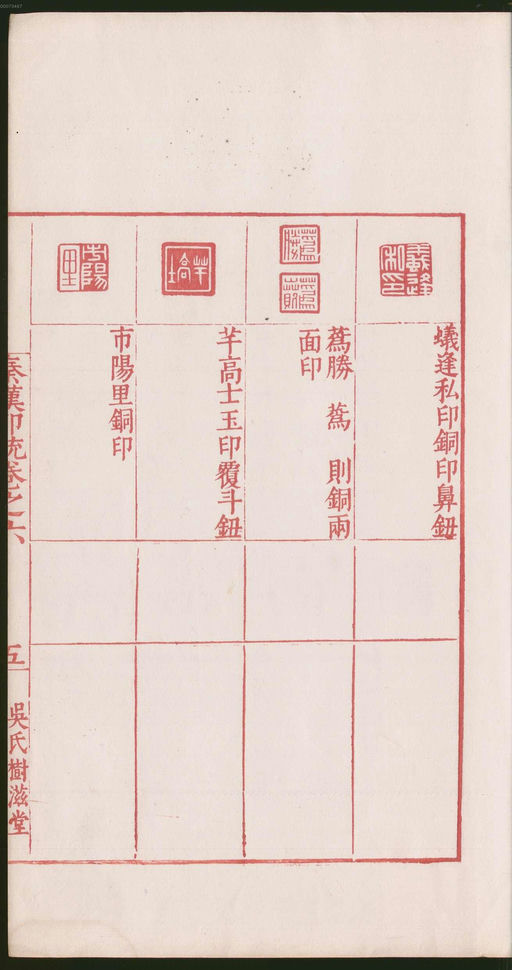 蟻逢私印銅印鼻鈕
蔿勝 蔿 則銅兩
面印
芉高士玉印覆斗鈕
市陽里銅印
秦漢印統卷之六
五
吳氏樹滋堂